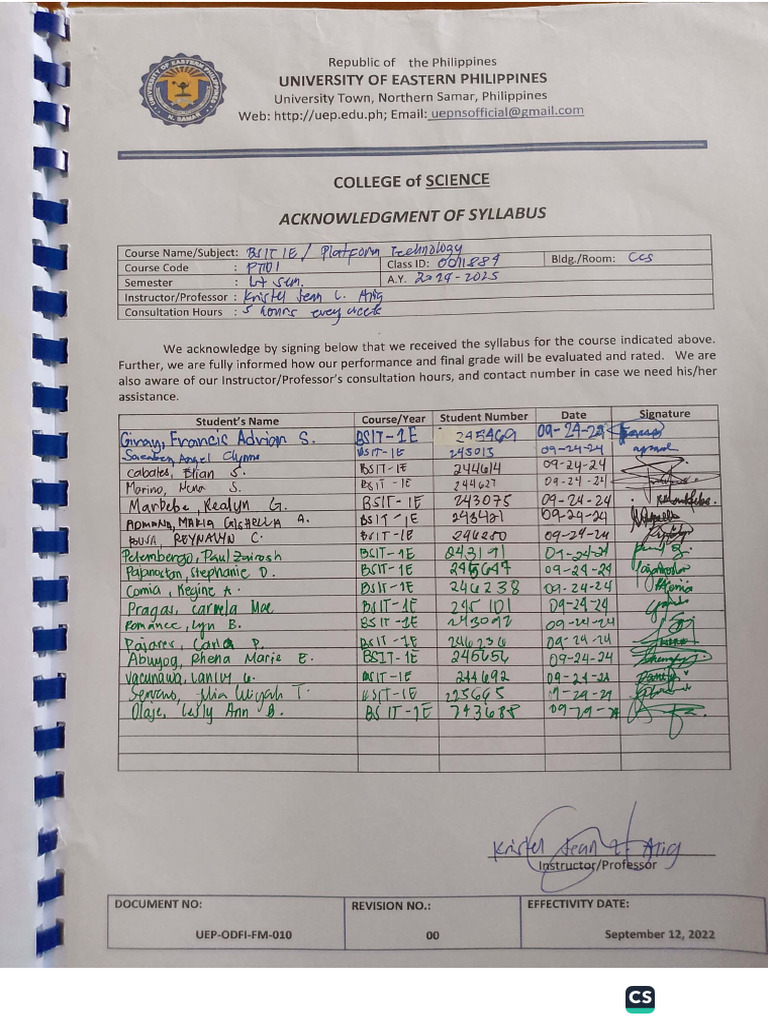 Republic of the Philippines
UNIVERSITY OF EASTERN PHILIPPINES
University Town, Northern Samar, Philippines
Web: http://uep.edu.ph; Email: uepnsofficial@gmail.com
UNIVERSITY OF EASTERN PHILIPPINES
N. SAMAR
COLLEGE of SCIENCE
ACKNOWLEDGMENT OF SYLLABUS
Course Name/Subject: BSIT 1E / Platform Technology
Course Code : PT101 Class ID: 0011889 Bldg./Room: CCS
Semester : 1st sem. A.Y. 2024-2025
Instructor/Professor : Kristel Jean L. Arig
Consultation Hours : 5 hours every week
We acknowledge by signing below that we received the syllabus for the course indicated above.
Further, we are fully informed how our performance and final grade will be evaluated and rated. We are
also aware of our Instructor/Professor's consultation hours, and contact number in case we need his/her
assistance.
Student's Name Course/Year Student Number Date Signature
Giray, Francis Adrian S. BSIT-1E 245469 09-24-24
Angel Clynne BSIT-1E 245013 09-24-24
Cabales, Elian S. BSIT-1E 244614 09-24-24
Morino, Nena S. BSIT-1E 244627 09-24-24
Manbebe, Kealyn G. BSIT-1E 243075 09-24-24
ADMANA, MARIA CRISHELLA A. BSIT-1E 243421 09-24-24
REYNALYN C. BSIT-1E 246250 09-24-24
Petembergo, Paul Zairosh BSIT-1E 243171 09-24-24
Papanostan, Stephanie D. BSIT-1E 245647 09-24-24
Comia, Regine A. BSIT-1E 246238 09-24-24
Pragas, Carmela Mae BSIT-1E 245101 09-24-24
Romance, Lyn B. BSIT-1E 243092 09-24-24
Pajares, Carla P. BSIT-1E 246236 09-24-24
Abuyog, Rhena Marie E. BSIT-1E 245656 09-24-24
Vacunawa, Lanivy G. BSIT-1E 244692 09-24-24
Serrano, T. BSIT-1E 225665 09-24-24
Olaje, Lesly Ann B. BSIT-1E 243688 09-24-24
Kristel Jean L. Arig
Instructor/Professor
DOCUMENT NO: REVISION NO.: EFFECTIVITY DATE:
UEP-ODFI-FM-010 00 September 12, 2022
CS